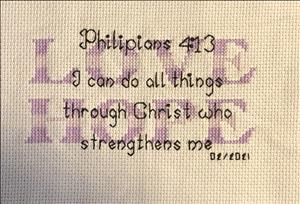 Philipians 4:13
LOVE
I can do all things
through Christ who
HOPE
strengthens me
02/2021